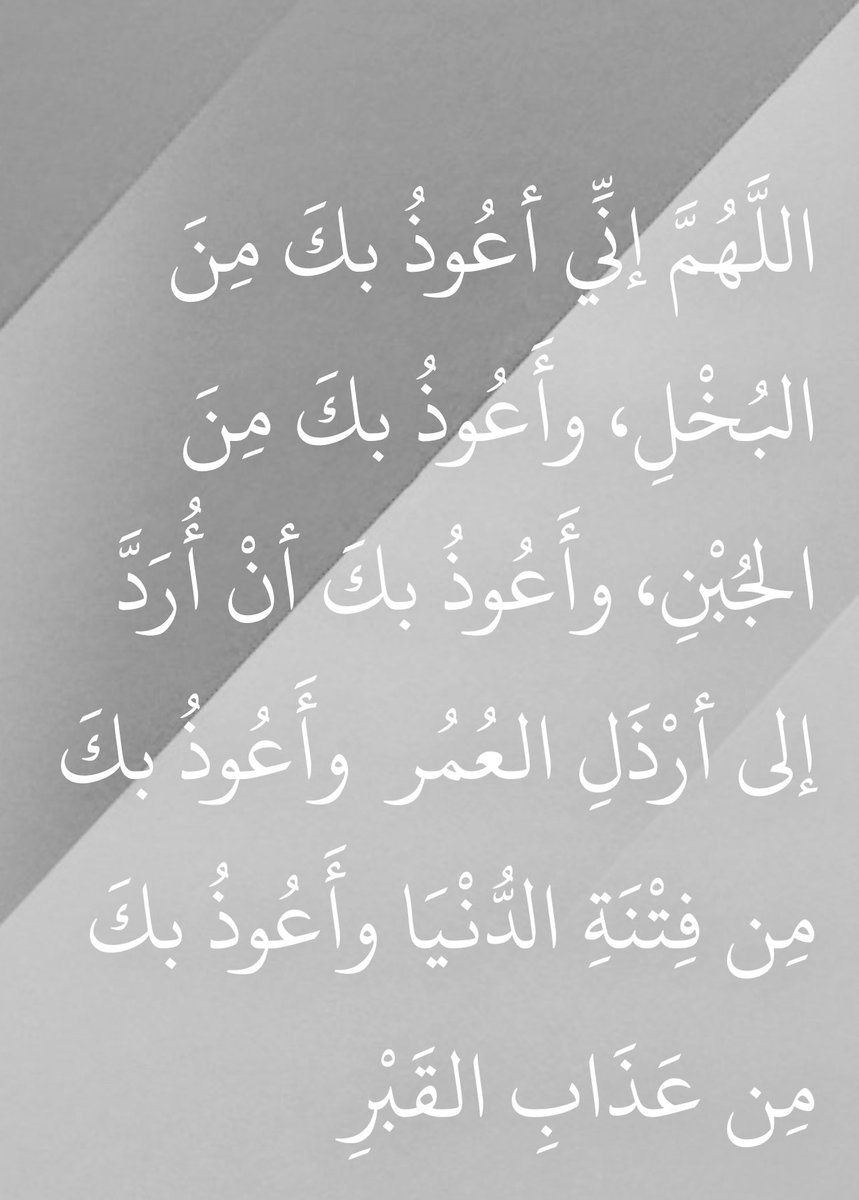 اللَّهُمَّ إنِّي أعُوذُ بكَ مِنَ
البُخْلِ، وأَعُوذُ بكَ مِنَ
الجُبْنِ، وأَعُوذُ بكَ أنْ أُرَدَّ
إلى أرْذَلِ العُمُر وأَعُوذُ بكَ
مِن فِتْنَةِ الدُّنْيَا وأَعُوذُ بكَ
مِن عَذَابِ القَبْرِ